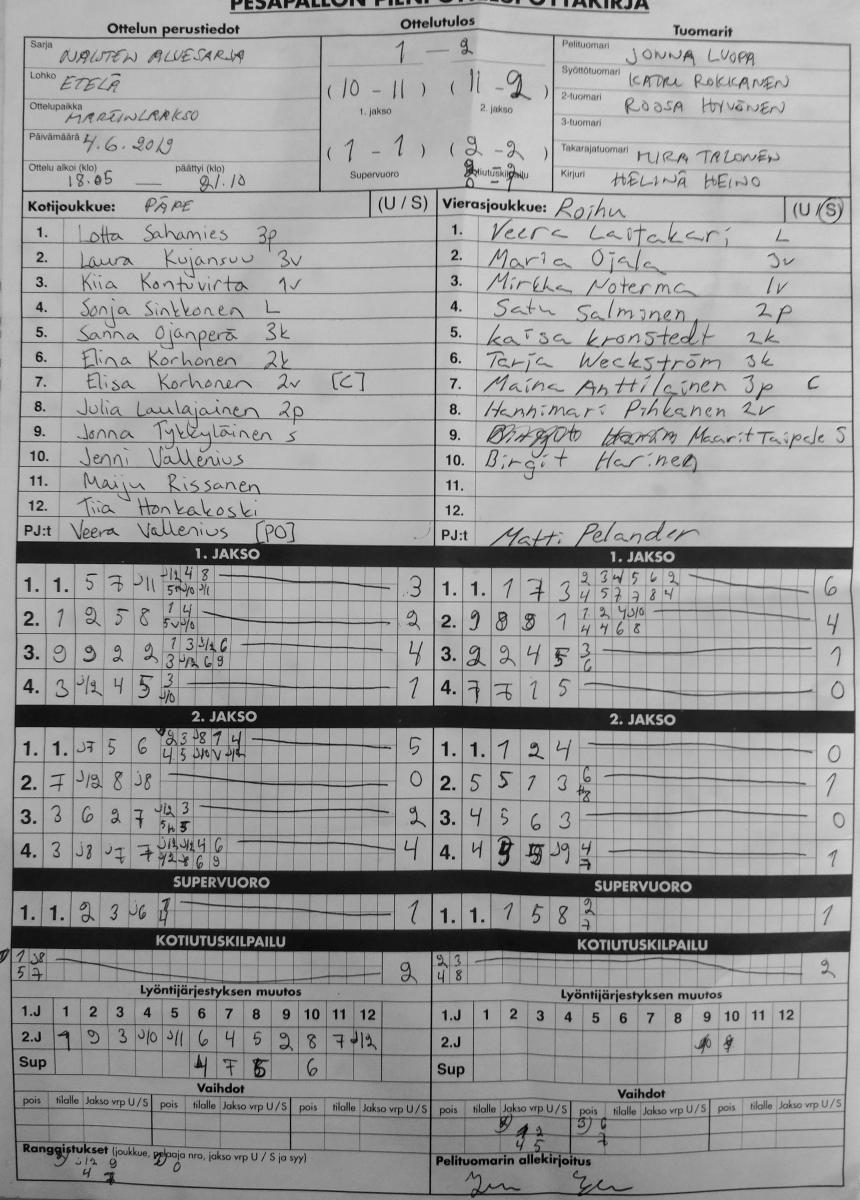 PESÄPALLON PIENPÖYTÄKIRJA
Ottelun perustiedot
Sarja NAISTEN ALUESARJA
Lohko ETELÄ
Ottelupaikka MARTINLAAKSO
Päivämäärä 4.6.2019
Ottelu alkoi (klo) päättyi (klo)
18.05 — 21.10
Ottelutulos
1 — 2
(10 - 11) (11 - 2)
1. jakso 2. jakso
(1 - 1) (2 - 2)
Supervuoro Kotiutuskilpailu
Tuomarit
Pelituomari JONNA LUOPA
Syöttötuomari KATRI ROKKANEN
2-tuomari ROOSA HYVÖNEN
3-tuomari
Takarajatuomari MIRA TALONEN
Kirjuri HELINÄ HEINO
Kotijoukkue: PÄPE (U / S)
1. Lotta Sahamies 3p
2. Laura Kujansuu 3v
3. Kiia Kontuvirta 1v
4. Sonja Sinkkonen L
5. Sanna Ojanperä 3k
6. Elina Korhonen 2k
7. Elisa Korhonen 2v [C]
8. Julia Laulajainen 2p
9. Jonna Tykkyläinen s
10. Jenni Vallenius
11. Maiju Rissanen
12. Tiia Honkakoski
PJ:t Veera Vallenius [PO]
Vierasjoukkue: Roihu (U / S)
1. Veera Laitakari L
2. Maria Ojala 3v
3. Mirkka Noterma 1v
4. Satu Salminen 2p
5. Kaisa Kronstedt 2k
6. Tarja Weckström 3k
7. Maina Anttilainen 3p C
8. Hannimari Pihkanen 2v
9. Maarit Taipale S
10. Birgit Harinen
11.
12.
PJ:t Matti Pelander
1. JAKSO
1. 1. 5 7 J11 J12 4 8 3
5 J10 J11
2. 1 2 5 8 1 4 2
5 J10
3. 9 9 2 2 1 3 J12 6 4
3 J12 6 9
4. 3 J12 4 5 3 1
J10
1. JAKSO
1. 1. 1 7 3 2 3 4 5 6 2 6
4 5 7 7 8 4
2. 9 8 9 1 1 2 4 J10 4
4 4 6 8
3. 2 2 4 5 3 1
6
4. 7 7 1 5 0
2. JAKSO
1. 1. J7 5 6 2 3 J8 1 4 5
4 5 J10
2. 7 J12 8 J8 0
3. 3 6 2 7 J12 3 2
5
4. 3 J8 J7 7 J11 J12 4 6 4
6 9
2. JAKSO
1. 1. 1 2 4 0
2. 5 5 1 3 6 1
8
3. 4 5 6 3 0
4. 4 J9 4 1
7
SUPERVUORO
1. 1. 2 3 J6 1
4
SUPERVUORO
1. 1. 1 5 8 2 1
7
KOTIUTUSKILPAILU
1 J8 2
5 7
KOTIUTUSKILPAILU
2 3 2
4 8
Lyöntijärjestyksen muutos
1.J 1 2 3 4 5 6 7 8 9 10 11 12
2.J 1 9 3 J10 J11 6 4 5 2 8 7 J12
Sup 4 7 6
Lyöntijärjestyksen muutos
1.J 1 2 3 4 5 6 7 8 9 10 11 12
2.J
Sup
Vaihdot
pois tilalle Jakso vrp U / S pois tilalle Jakso vrp U / S pois tilalle Jakso vrp U / S
Vaihdot
pois tilalle Jakso vrp U / S pois tilalle Jakso vrp U / S pois tilalle Jakso vrp U / S
2 3) 6
4 5 7
Rangaistukset (joukkue, pelaaja nro, jakso vrp U / S ja syy)
J12 9 0
4
Pelituomarin allekirjoitus